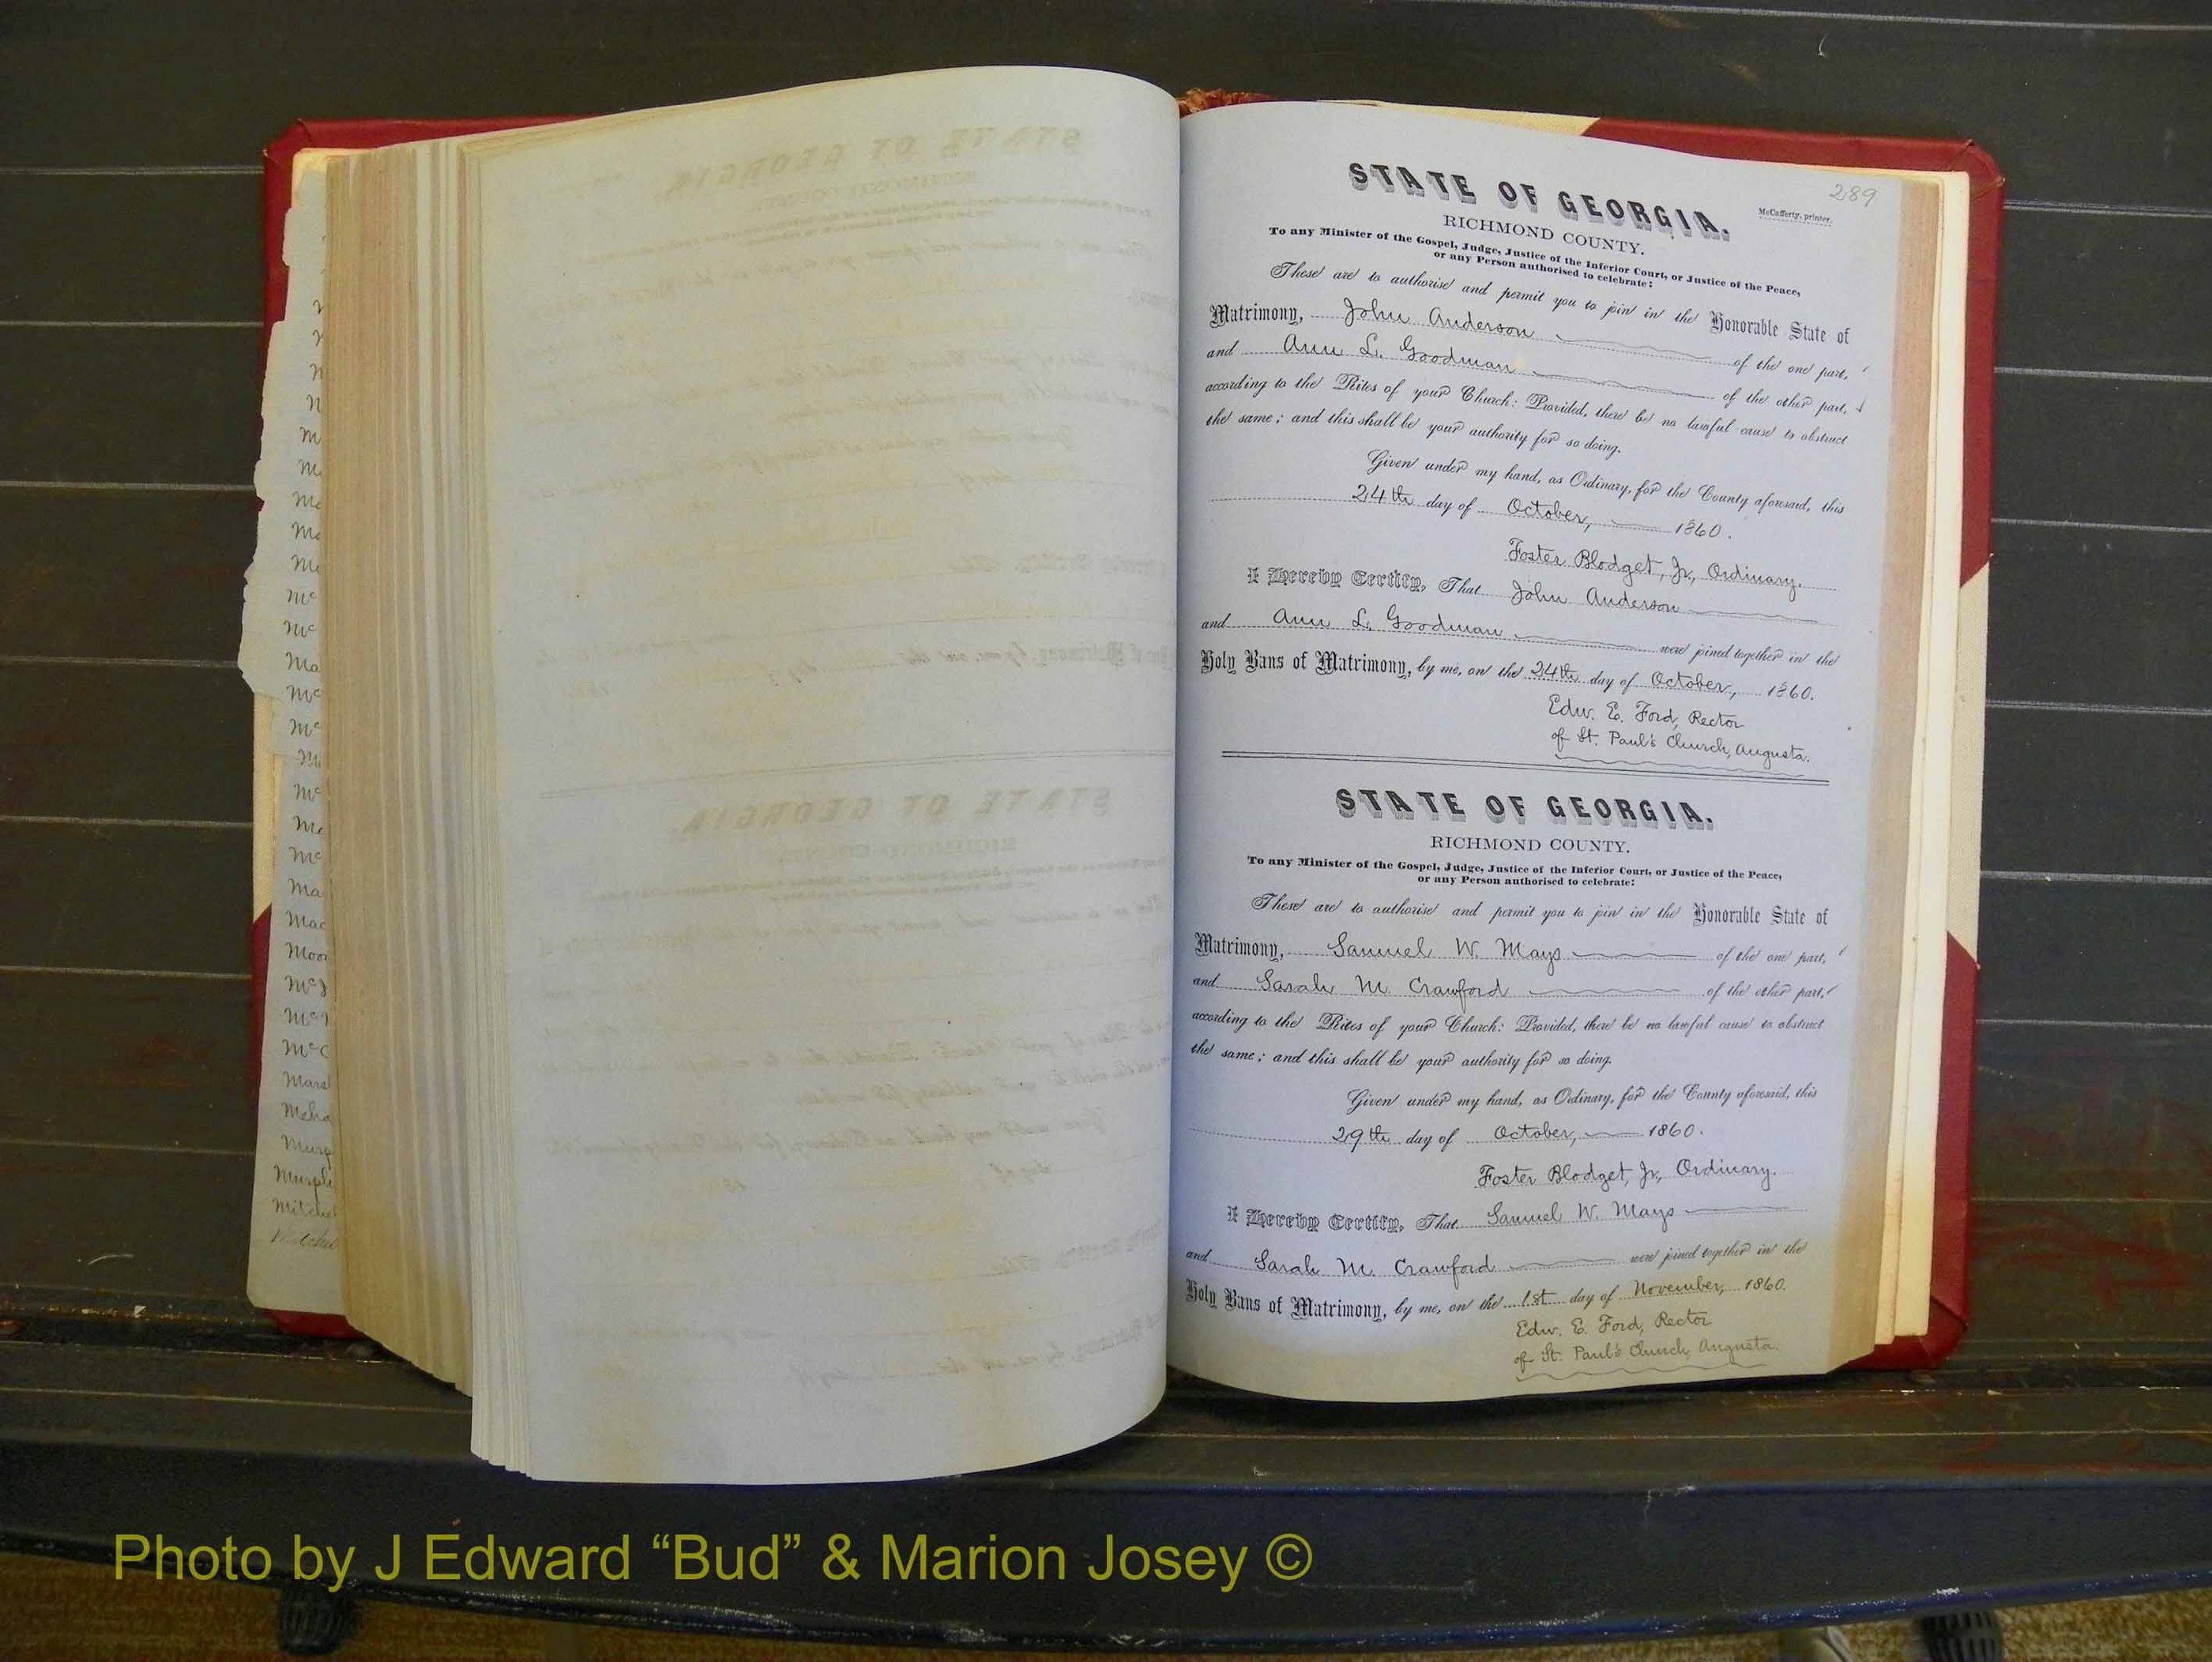 m
m
Mc
Mc
Mc
Mc
Mc
Ma
Mc
Mc
Mc
Mc
Mc
Ma
Mac
Moor
Mc
Mc
McC
Marsh
Murp
Murph
Mitchel
Mitchel
289
STATE OF GEORGIA.
McCafferty, printer.
RICHMOND COUNTY.
To any Minister of the Gospel, Judge, Justice of the Inferior Court, or Justice of the Peace,
or any Person authorised to celebrate:
These are to authorise and permit you to join in the Honorable State of
Matrimony, John Anderson of the one part,
and Ann L. Goodman of the other part,
according to the Rites of your Church: Provided, there be no lawful cause to obstruct
the same; and this shall be your authority for so doing.
Given under my hand, as Ordinary, for the County aforesaid, this
24th day of October, 1860.
Foster Blodget, Jr., Ordinary.
I Hereby Certify, That John Anderson
and Ann L. Goodman were joined together in the
Holy Bans of Matrimony, by me, on the 24th day of October, 1860.
Edw. E. Ford, Rector
of St. Paul's Church, Augusta.
STATE OF GEORGIA.
RICHMOND COUNTY.
To any Minister of the Gospel, Judge, Justice of the Inferior Court, or Justice of the Peace,
or any Person authorised to celebrate:
These are to authorise and permit you to join in the Honorable State of
Matrimony, Samuel W. Mays of the one part,
and Sarah M. Crawford of the other part,
according to the Rites of your Church: Provided, there be no lawful cause to obstruct
the same; and this shall be your authority for so doing.
Given under my hand, as Ordinary, for the County aforesaid, this
29th day of October, 1860.
Foster Blodget, Jr., Ordinary.
I Hereby Certify, That Samuel W. Mays
and Sarah M. Crawford were joined together in the
Holy Bans of Matrimony, by me, on the 1st day of November, 1860.
Edw. E. Ford, Rector
of St. Paul's Church, Augusta.
Photo by J Edward “Bud” & Marion Josey ©